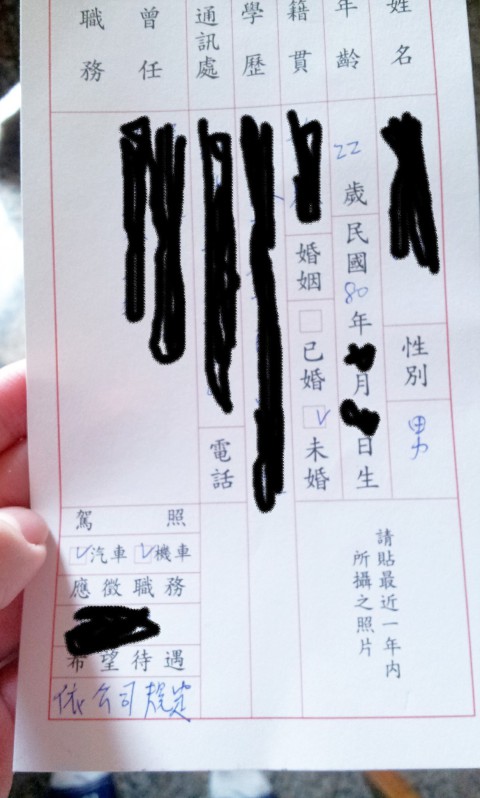 姓名
性別
男
年齡
22歲
民國80年月日生
籍貫
婚姻
已婚
未婚
學歷
通訊處
電話
曾任職務
駕照
汽車 機車
應徵職務
希望待遇
依公司規定
請貼最近一年內
所攝之照片